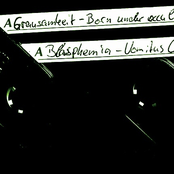 A Grausamkeit - Born under
A Blasphemia - Vomitus